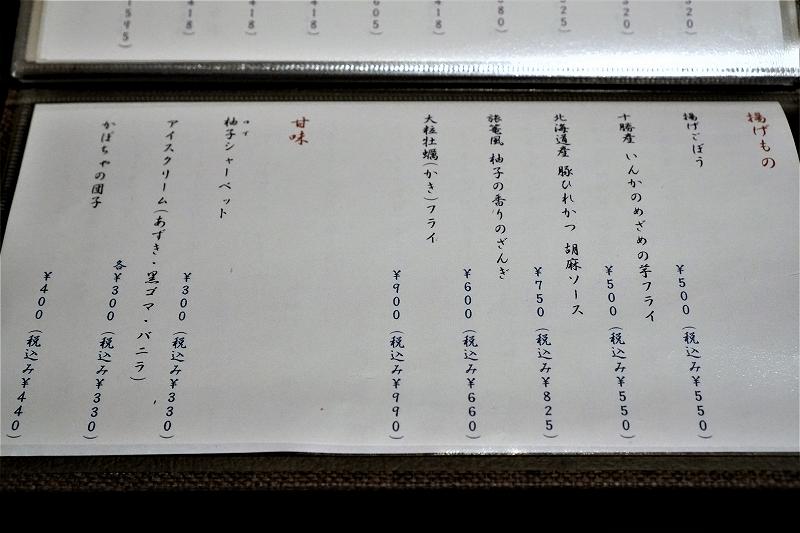 418)
605)
418)
418)
1595)
揚げもの
揚げごぼう
¥500(税込み¥550)
十勝産 いんかのめざめの芋フライ
¥500(税込み¥550)
北海道産 豚ひれかつ 胡麻ソース
¥750(税込み¥825)
柚子の香りのざんぎ
¥600(税込み¥660)
大粒牡蠣(かき)フライ
¥900(税込み¥990)
甘味
柚子シャーベット
¥300(税込み¥330)
アイスクリーム(あずき・黒ゴマ・バニラ)
各¥300(税込み¥330)
かぼちゃの団子
¥400(税込み¥440)